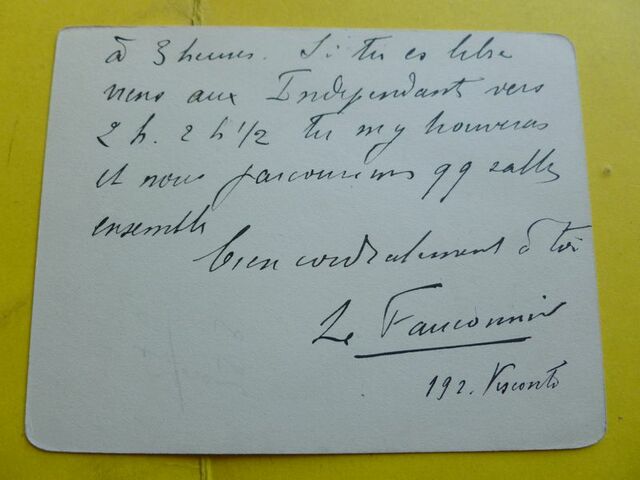 à 3 heures. Si tu es libre
viens aux Indépendant vers
2 h. 2 h 1/2 tu m'y trouveras
et nous parcourrons qq salles
ensemble
bien cordialement à toi
Le Fauconnier
19 r. Visconti